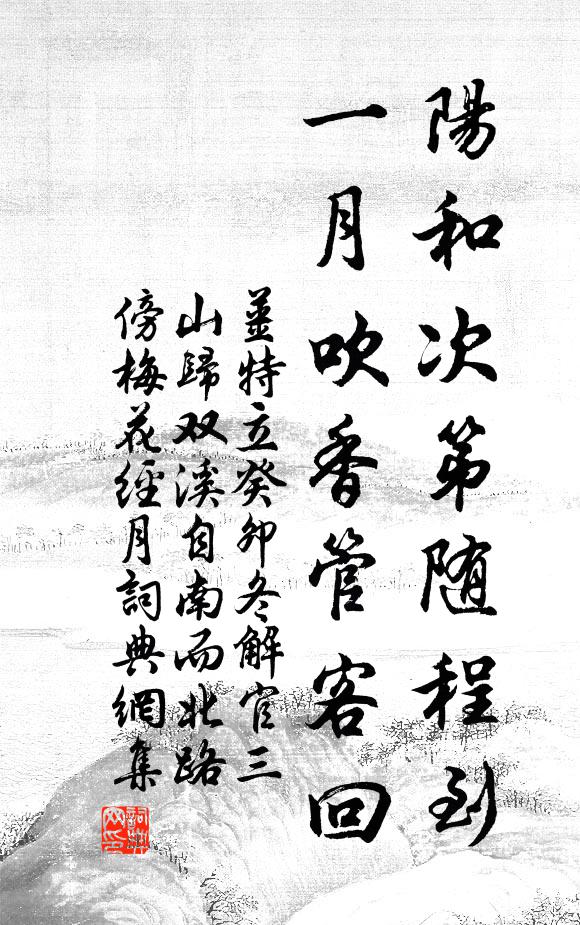 陽和次第随程到
一月吹香管客回
姜特立癸卯冬解官三
山歸双溪自南而北路
傍梅花經月詞典網集
詞典網印